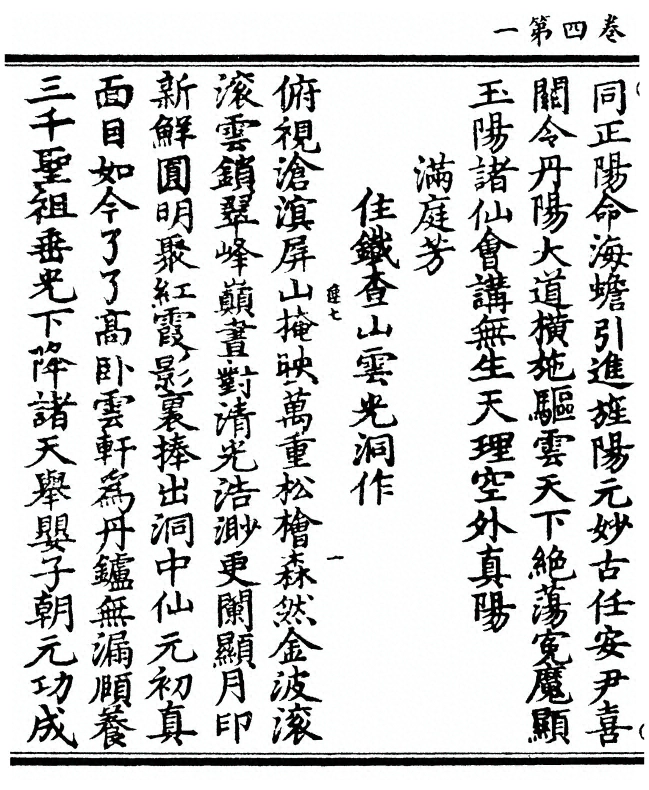 卷四第一
同正陽命海蟾引進旌陽元妙古任安尹喜
關令丹陽大道横施驅雲天下絶蕩寃魔顯
玉陽諸仙會講無生天理空外真陽
滿庭芳
住鐵查山雲光洞作
俯視滄溟屏山掩映萬重松檜森然金波滚
滚雲鎖翠峰巔晝對清光浩渺更闌顯月印
新鮮圓明聚紅霞影裏捧出洞中仙元初真
面目如今了了高卧雲軒為丹鑪無漏頤養
三千聖祖垂光下降諸天舉嬰子朝元功成
七
一